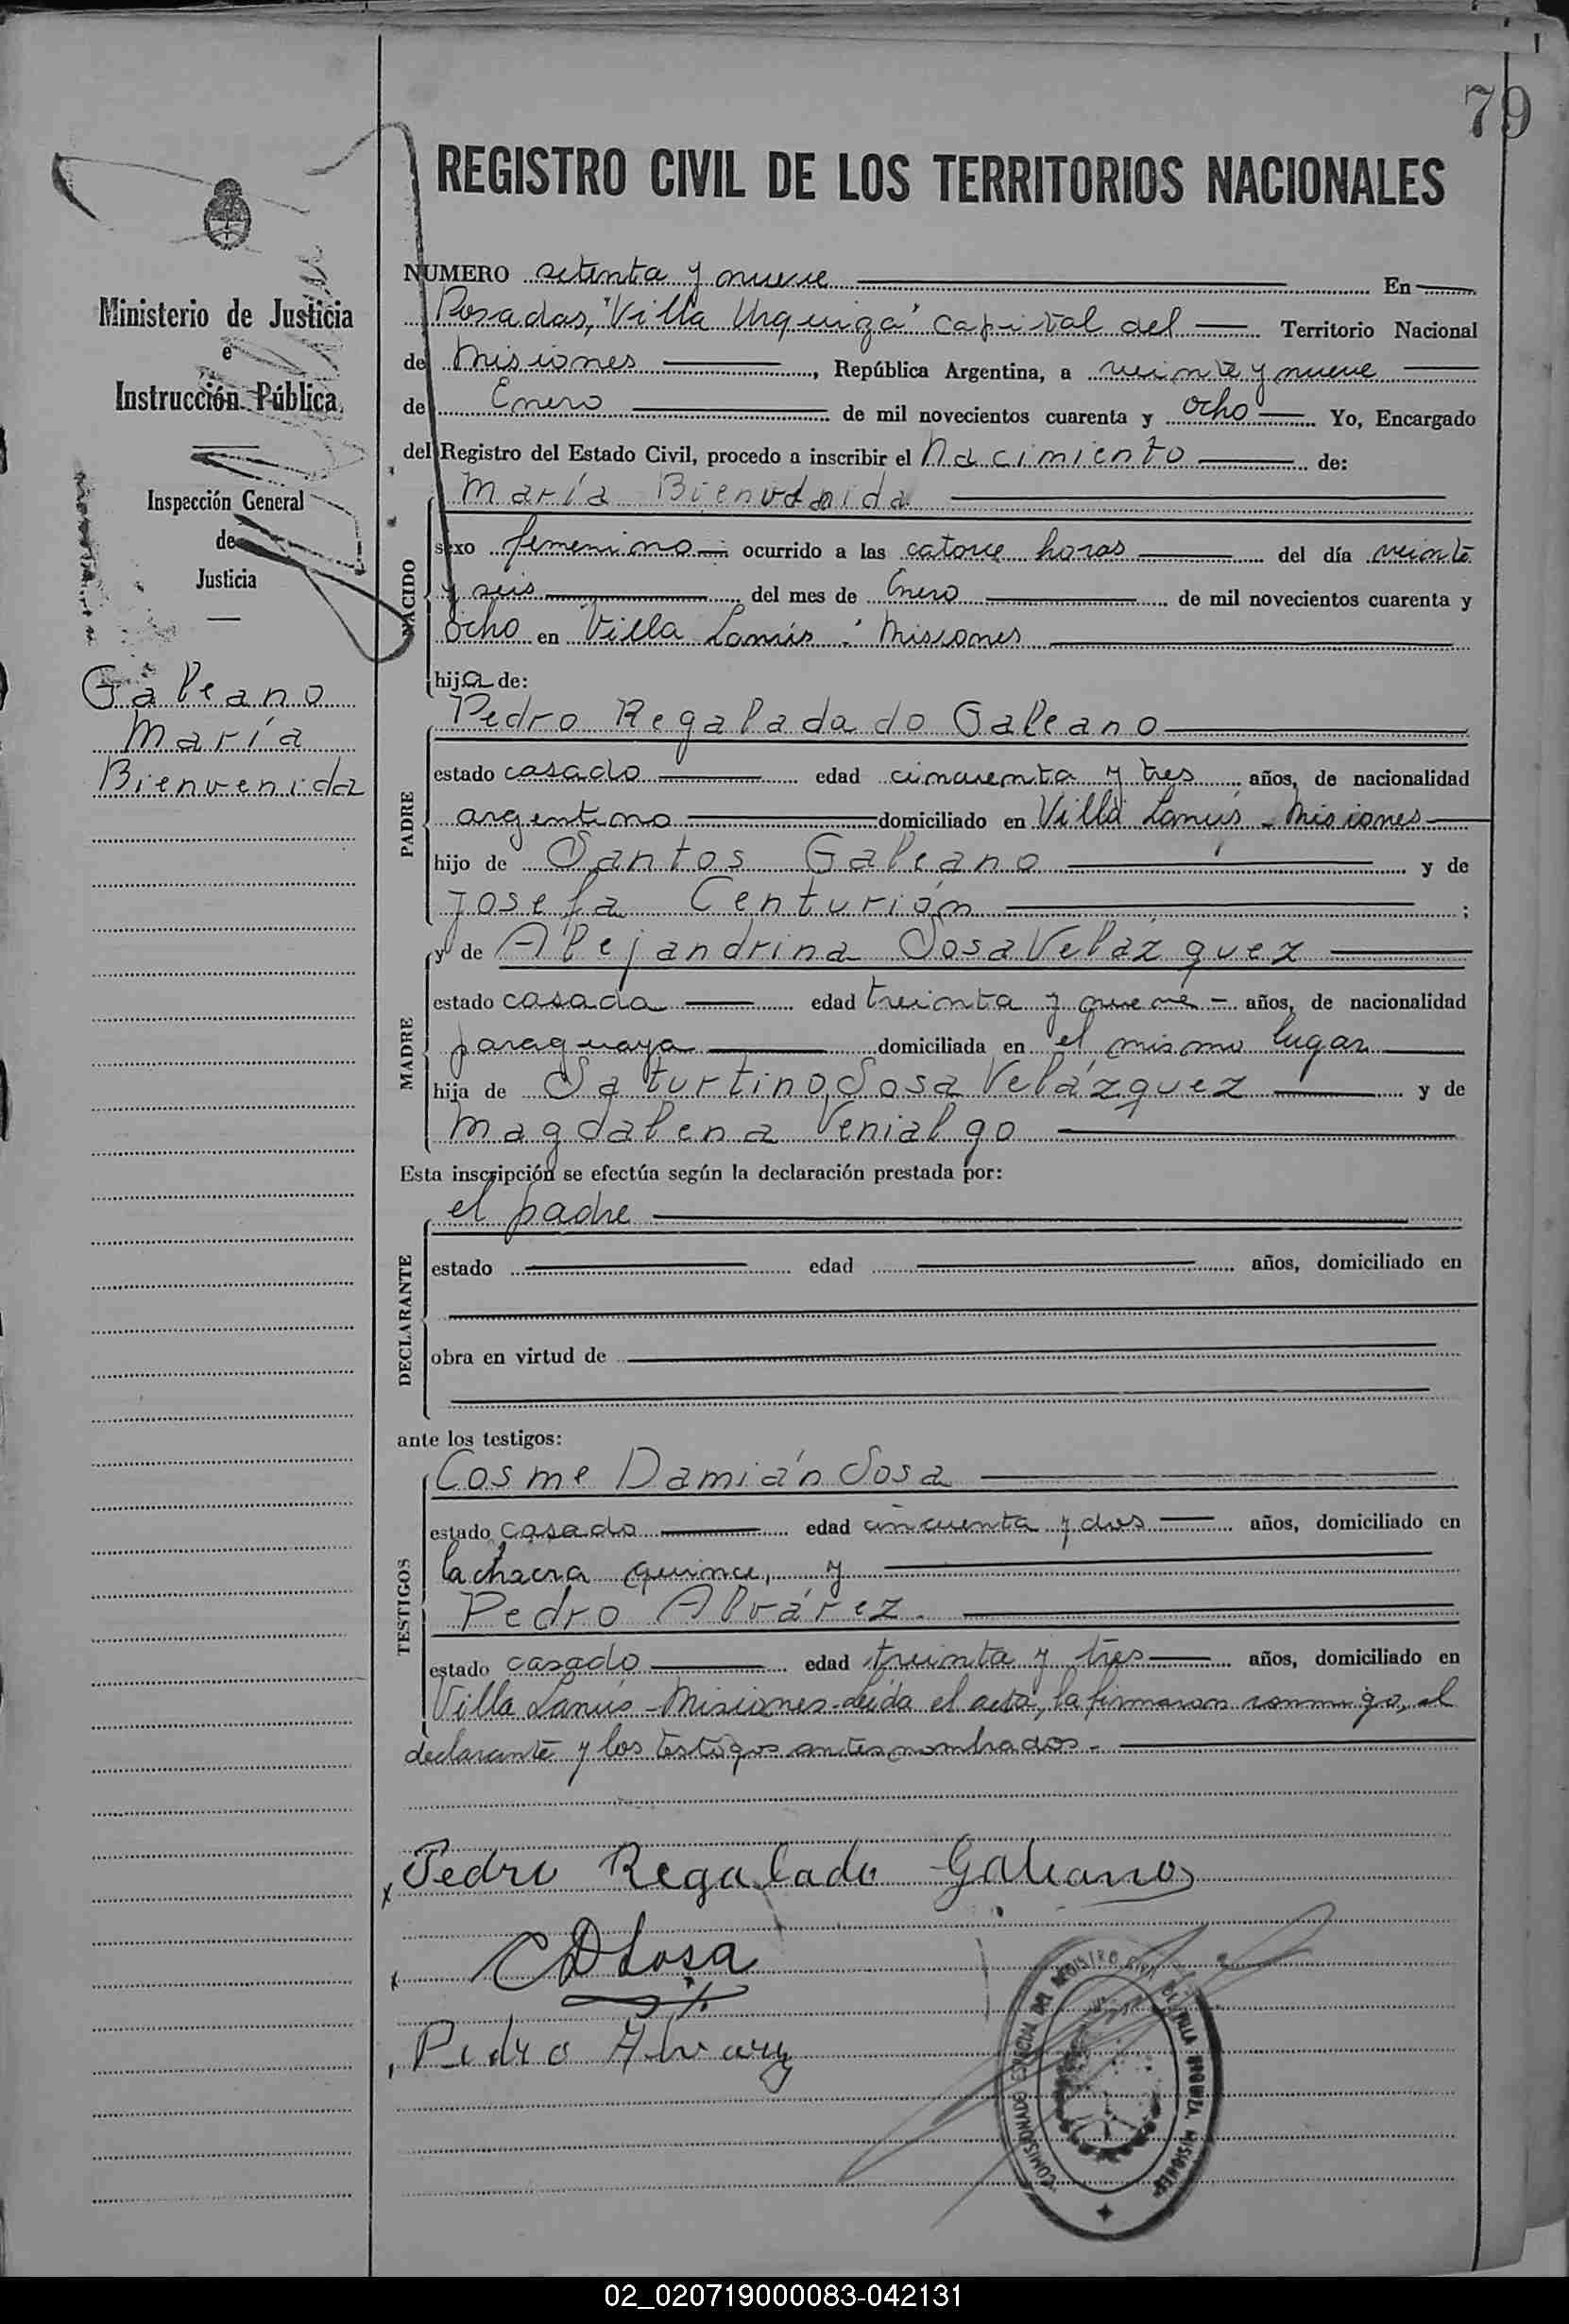 79
REGISTRO CIVIL DE LOS TERRITORIOS NACIONALES
Ministerio de Justicia
e
Instrucción Pública
Inspección General
de
Justicia
Galeano
María
Bienvenida
NUMERO setenta y nueve En
Posadas, "Villa Urquiza" capital del Territorio Nacional
de Misiones, República Argentina, a veinte y nueve
de Enero de mil novecientos cuarenta y ocho Yo, Encargado
del Registro del Estado Civil, procedo a inscribir el Nacimiento de:
NACIDO
María Bienvenida
sexo femenino ocurrido a las catorce horas del día veinte
y seis del mes de Enero de mil novecientos cuarenta y
ocho en Villa Lanús - Misiones
hija de:
PADRE
Pedro Regaladado Galeano
estado casado edad cincuenta y tres años, de nacionalidad
argentino domiciliado en Villa Lanús - Misiones
hijo de Santos Galeano y de
Josefa Centurión ;
MADRE
y de Alejandrina Sosa Velázquez
estado casada edad treinta y nueve - años, de nacionalidad
paraguaya domiciliada en el mismo lugar
hija de Saturtino Sosa Velázquez y de
Magdalena Venialgo
Esta inscripción se efectúa según la declaración prestada por:
DECLARANTE
el padre
estado edad años, domiciliado en
obra en virtud de
ante los testigos:
TESTIGOS
Cosme Damián Sosa
estado casado edad cincuenta y dos años, domiciliado en
la chacra quince, y
Pedro Alvárez.
estado casado edad treinta y tres años, domiciliado en
Villa Lanús - Misiones - Leída el acta, la firmaron conmigo, el
declarante y los testigos antes nombrados.-
Pedro Regalado Galeano
CDSosa
Pedro Alvarez
COMISIONADO ESPECIAL DEL REGISTRO CIVIL DE VILLA URQUIZA. MISIONES
02_020719000083-042131